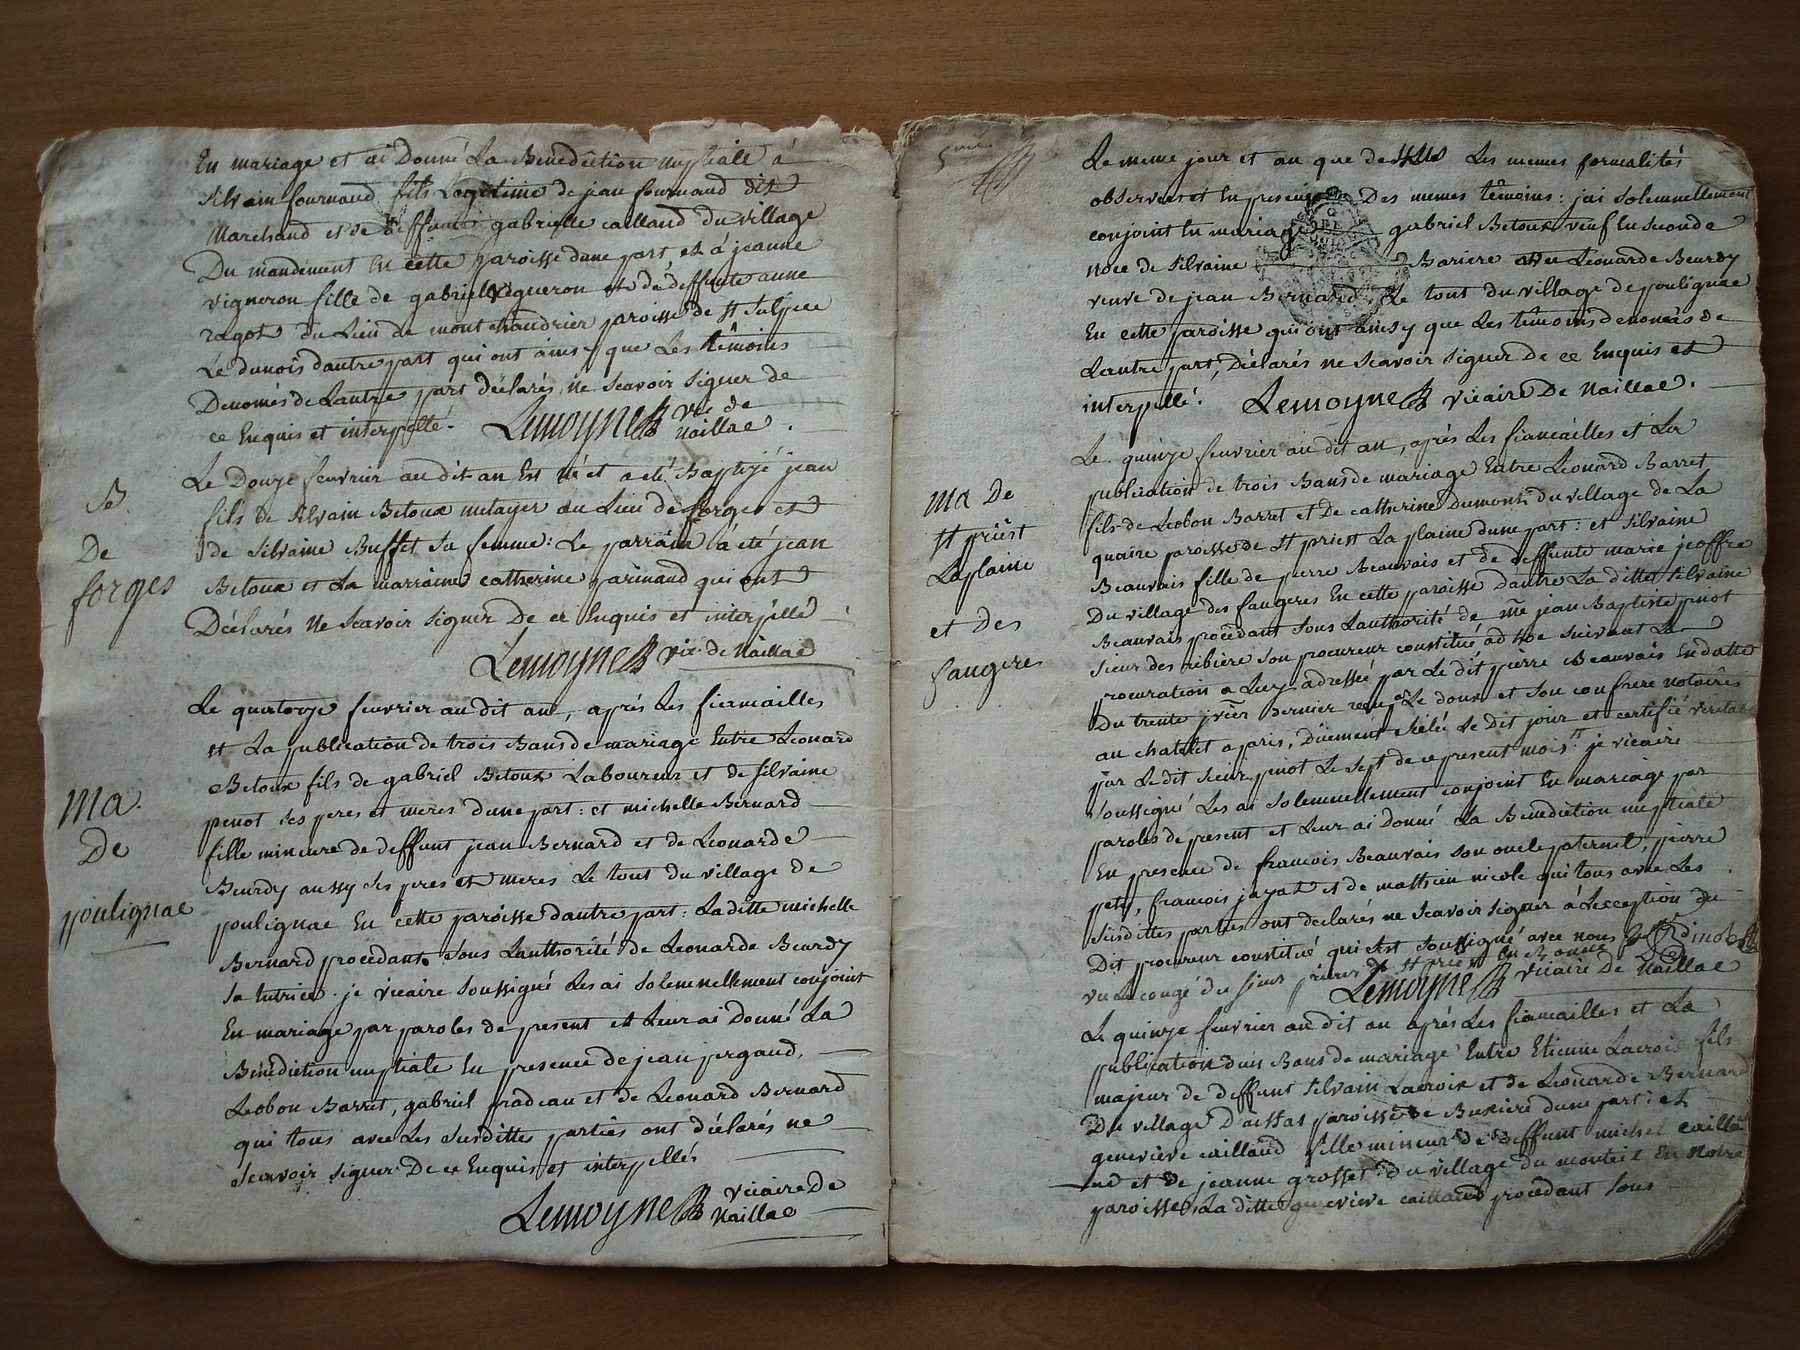 En mariage et ai Donné La Benediction nuptiale à
silvain fournaud fils Legitime de jean fournaud dit
Marchand et de deffunte gabrielle caillaud du village
Du mandement En cette paroisse dune part et à jeanne
vigneron fille de gabriel vigneron et de deffunte anne
ragot du Lieu de montchaudrier paroisse de st sulpice
Le dunois dautre part qui ont ainsy que Les têmoins
Denomés de Lautre part déclarés ne scavoir signer de
ce Enquis et interpellé. Lemoyne vic de
Naillac.
Le Douze fevrier au dit an Est né et a été Baptizé jean
fils de silvain Betoux metayer au Lieu de forges et
de silvaine Buffet sa femme: Le parrain a été jean
Betoux et La marraine catherine parinaud qui ont
Déclarés ne scavoir signer De ce Enquis et interpéllé
Lemoyne vic. de Naillac
B.
De
forges
Le quatorze fevrier au dit an, aprés Les fiancailles
et La publication de trois Bans de mariage Entre Leonard
Betoux fils de gabriel Betoux Laboureur et de silvaine
penot ses peres et meres dune part: et michelle Bernard
fille mineure de deffunt jean Bernard et de Leonarde
Beurdy aussy ses peres et meres Le tout du village de
poulignac En cette paroisse dautre part: La ditte michelle
Bernard procédant sous Lauthorité de Leonarde Beurdy
sa tutrice. je vicaire soussigné Les ai solemnellement conjoint
En mariage par paroles de present et Leur ai Donné La
Bénédiction nuptiale En presence de jean pegaud,
Leobon Barret, gabriel pradeau et de Leonard Bernard
qui tous avec Les susdittes parties ont déclarés ne
scavoir signer De ce Enquis et interpellés
Lemoyne vicaire de
Naillac
Ma.
De
poulignac
5me
Le meme jour et an que dessus Les memes formalités
observées et En presence Des memes têmoins: jai solemnellement
conjoint En mariage gabriel Betoux veuf En seconde
noce de silvaine Bariere avec Leonarde Beurdy
veuve de jean Bernard, Le tout du village de poulignac
En cette paroisse qui ont ainsy que Les têmoins denomés de
Lautre part, Déclarés ne scavoir signer De ce Enquis et
interpellé. Lemoyne vicaire De Naillac.
Le quinze fevrier au dit an, aprés Les fiancailles et La
publication de trois Bans de mariage Entre Léonard Barret
fils de Leobon Barret et De catherine Dumont du village de La
quaire paroisse de st priest La plaine dune part: et silvaine
Beauvais fille de pierre Beauvais et de deffunte marie jeoffre
Du village des faugeres En cette paroisse dautre La ditte silvaine
Beauvais procédant sous Lauthorité de me jean Baptiste pinot
sieur des ribiere son procureur constitué ad hoc suivant La
procuration a Luy adressée par Le dit pierre Beauvais En datte
Du trente jver Dernier Le doux et son confrere notaires
au chatelet a paris, Düement Le Dit jour et certifié veritable
par Le dit sieur pinot Le sept de ce present mois je vicaire
soussigné Les ai solemnellement conjoint En mariage par
paroles de present et Leur ai Donné La Benediction nuptiale
En presence de francois Beauvais son oncle paternel, pierre
petit, francois jayat et de mathieu nicole qui tous avec Les
susdittes parties ont declarés ne scavoir signer à Léxception du
Dit procureur constitué qui Est soussigné avec nous pinot
vu Le congé du sieur prieur de st priest
Lemoyne vicaire De Naillac
Ma De
st priest
Laplaine
et Des
faugeres
Le quinze fevrier au dit an aprés Les fiancailles et La
publication duis Bans de mariage Entre Etienne Lacroix fils
majeur de deffunt silvain Lacroix et de Leonarde Bernard
Du village Dassas paroisse de Buxiere dune part: et
genevieve caillaud fille mineure de deffunt michel cailla
ud et de jeanne grosset du village du monteil En Notre
paroisse, La ditte genevieve caillaud procédant sous